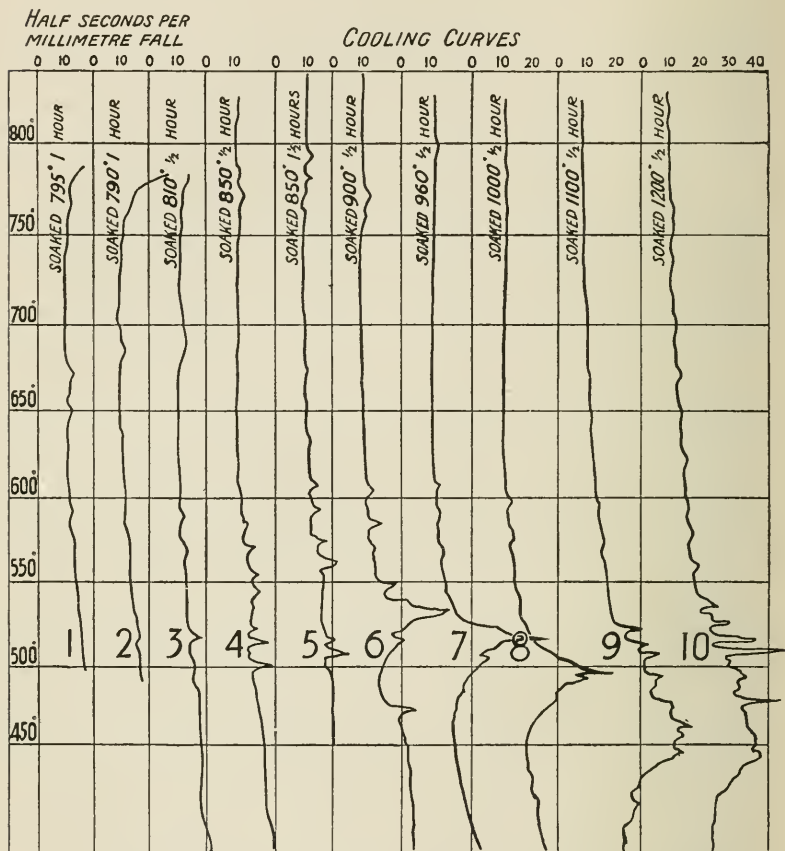 HALF SECONDS PER
MILLIMETRE FALL
COOLING CURVES
0 10 0 10 0 10 0 10 0 10 0 10 0 10 0 10 20 0 10 20 0 10 20 30 40
SOAKED 795° 1 HOUR
SOAKED 790° 1 HOUR
SOAKED 810° ½ HOUR
SOAKED 850° ½ HOUR
SOAKED 850° 1½ HOURS
SOAKED 900° ½ HOUR
SOAKED 960° ½ HOUR
SOAKED 1000° ½ HOUR
SOAKED 1100° ½ HOUR
SOAKED 1200° ½ HOUR
800°
750°
700°
650°
600°
550°
1 2 3 4 5 6 7 8 9 10
500°
450°